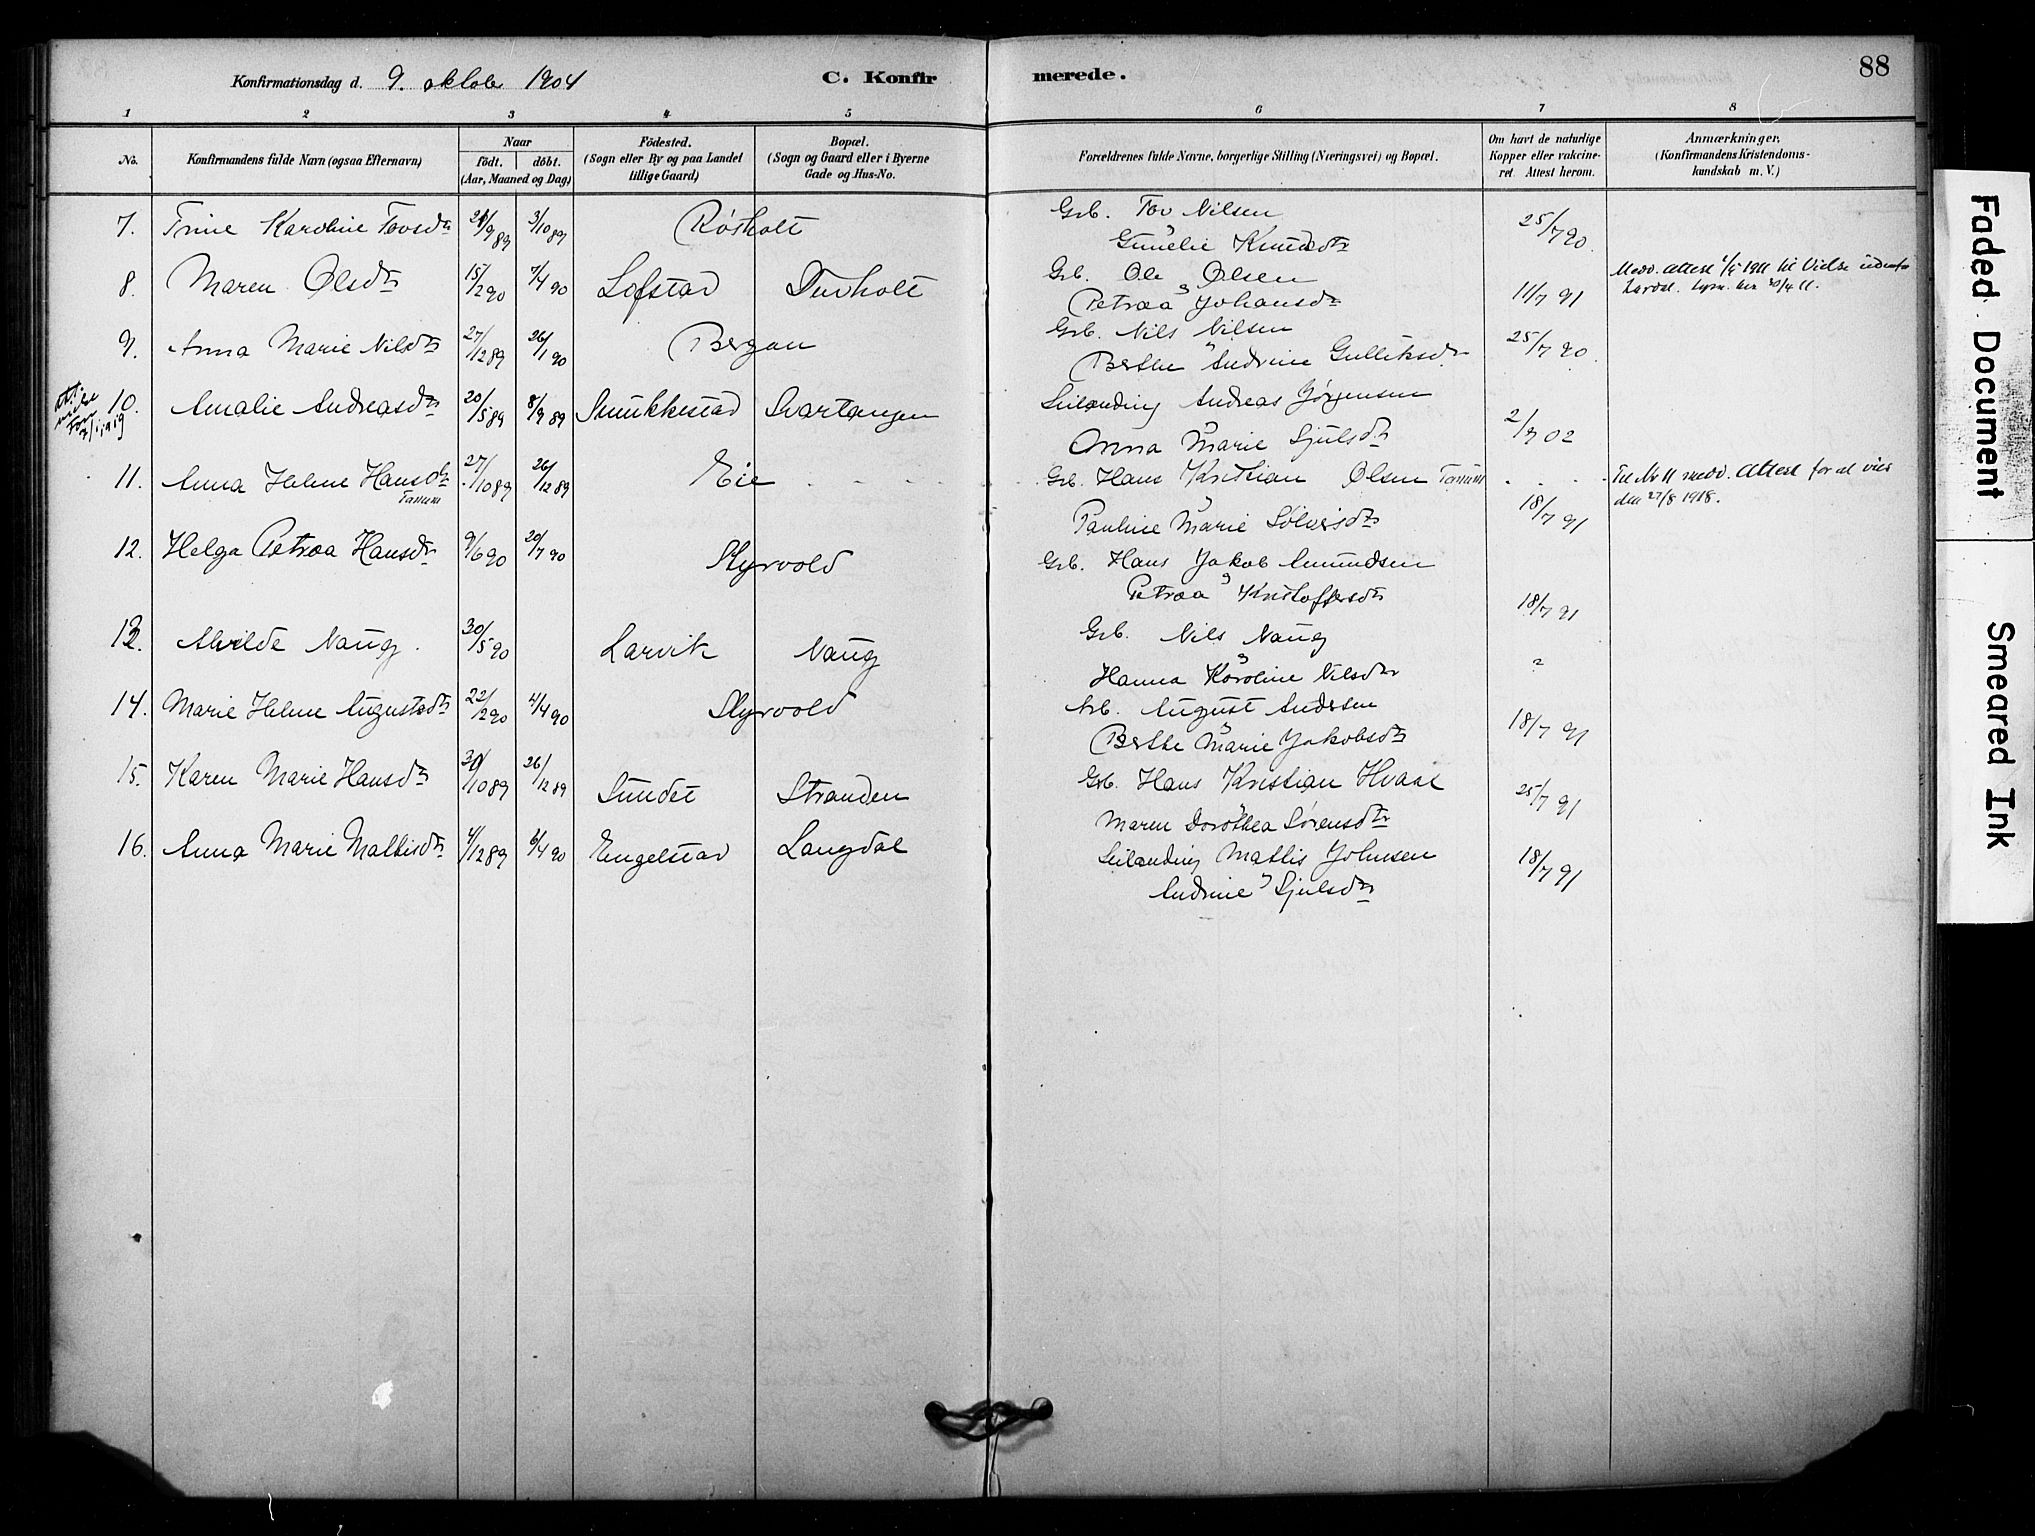 Konfirmationsdag d. 9. oktobr 1904
C. Konfirmerede.
88
1 2 3 4 5 6 7 8
No.
Konfirmandens fulde Navn (ogsaa Efternavn)
Naar
födt. döbt.
(Aar, Maaned og Dag)
Födested.
(Sogn eller By og paa Landet
tillige Gaard)
Bopæl.
(Sogn og Gaard eller i Byerne
Gade og Hus-No.
Forældrenes fulde Navne, borgerlige Stilling (Næringsvei) og Bopæl.
Om havt de naturlige
Kopper eller vakcine-
ret. Attest herom.
Anmærkninger,
(Konfirmandens Kristendoms-
kundskab m. V.)
7. Trine Karoline Tovsdtr 29/9 89 3/10 89 Røsholt Grb. Tov Nilsen 25/7 90
Gunelie Knudsdtr
8. Maren Olsdtr 15/2 90 7/4 90 Lofstad Duvholt Grb. Ole Olsen 11/7 91 Medd. Attest 1/5 1911 til Vielse
Petrea Johansdtr
9. Anna Marie Nilsdtr 27/12 89 26/1 90 Bergan Grb. Nils Nilsen 25/7 90
Berthe Andrine Gulliksdtr
10. Amalie Andreasdtr 20/5 89 8/9 89 Smukkestad Svartangen Leilænding Andreas Jørgensen
Anna Marie Sjulsdtr 2/7 02
11. Anna Helene Hansdtr 27/10 89 26/12 89 Eie Grb. Hans Kristian Olsen Tanum Til No 11 medd. Attest for at vies
Tanum den 27/8 1918.
Pauline Marie Sølvesdtr 18/7 91
12. Helga Petrea Hansdtr 9/6 90 20/7 90 Styrvold Grb. Hans Jakob Amundsen
Petrea Kristoffersdtr 18/7 91
13. Alvilde Naug. 30/5 90 Larvik Naug Grb. Nils Naug
Hanna Karoline Nilsdtr
14. Marie Helene Augustsdtr 22/2 90 4/4 90 Styrvold Arb. August Andersen 18/7 91
Berthe Marie Jakobsdtr
15. Karen Marie Hansdtr 30/10 89 26/12 89 Sundet Stranden Grb. Hans Kristian Hvaal 25/7 91
Maren Dorothea Sørensdtr
16. Anna Marie Mathisdtr 4/12 89 6/4 90 Engelstad Langdal Leilænding Mathis Johnsen 18/7 91
Andrine Sjulsdtr
Faded Document
Smeared Ink